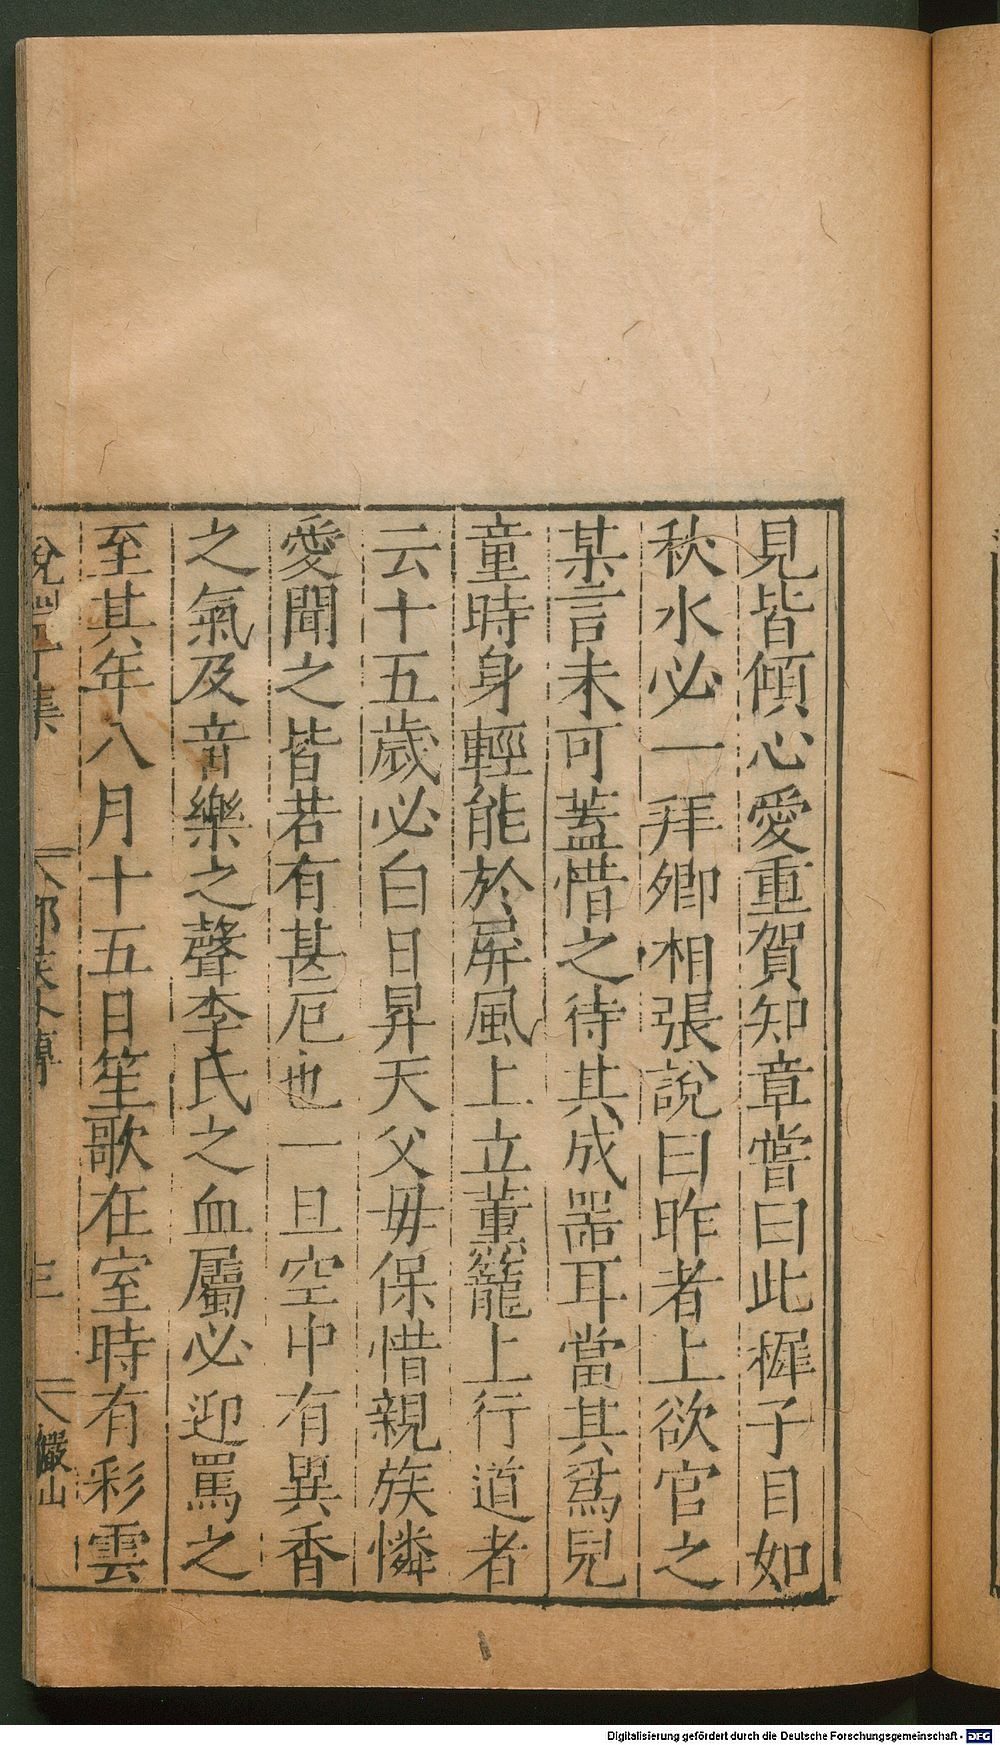 見皆傾心愛重賀知章嘗曰此稺子目如
秋水必一拜卿相張說曰昨者上欲官之
某言未可蓋惜之待其成噐耳當其爲兒
童時身輕能於屏風上立薫籠上行道者
云十五歲必白日昇天父毋保惜親族憐
愛聞之皆若有甚厄也一旦空中有異香
之氣及音樂之聲李氏之血屬必迎罵之
至其年八月十五日笙歌在室時有彩雲
集
外傳
三
巖山
Digitalisierung gefördert durch die Deutsche Forschungsgemeinschaft - DFG